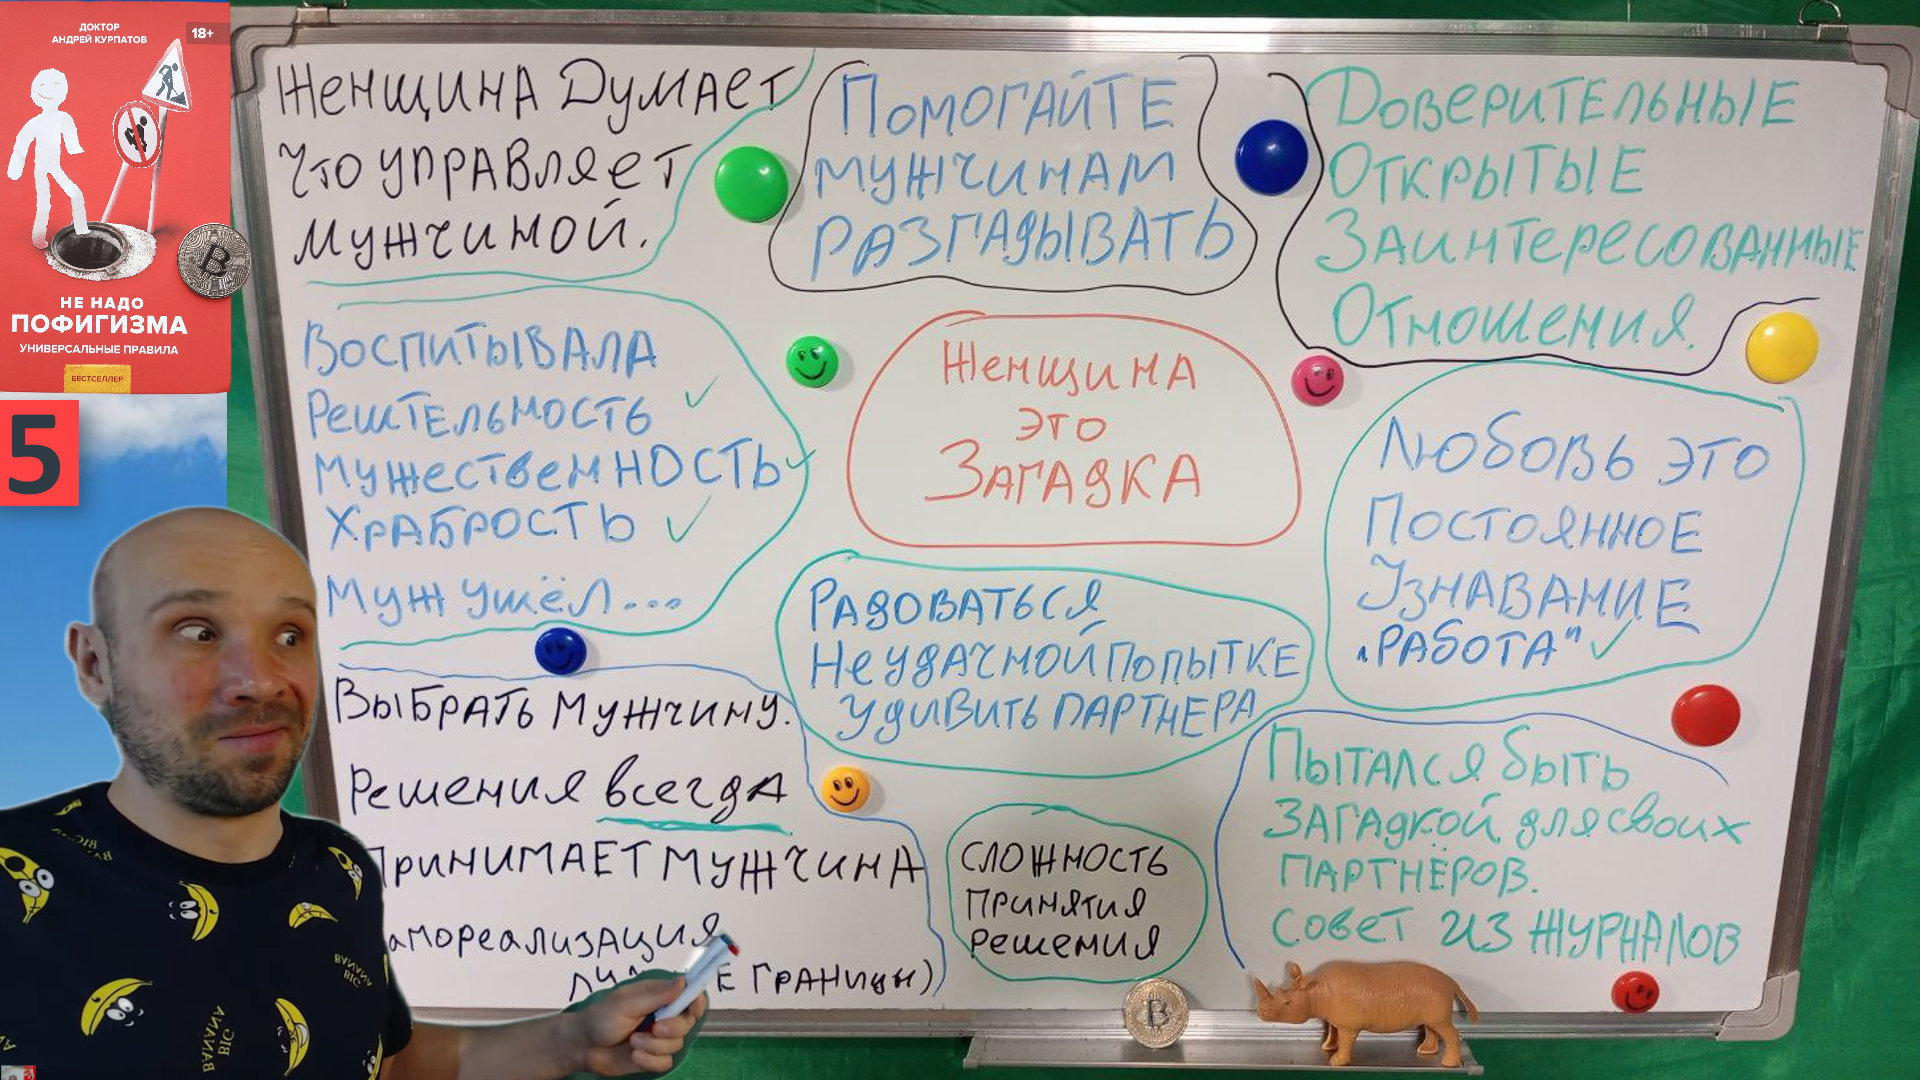 ДОКТОР
АНДРЕЙ КУРПАТОВ
18+
НЕ НАДО
ПОФИГИЗМА
УНИВЕРСАЛЬНЫЕ ПРАВИЛА
БЕСТСЕЛЛЕР
5
Женщина Думает
Что управляет
Мужчиной.
Помогайте
мужчинам
разгадывать
Доверительные
Открытые
Заинтересованные
Отношения.
Воспитывала
Рештельность
Мужественность
Храбрость
Муж ушёл...
Женщина
это
Загадка
Любовь это
Постоянное
Узнавание
"Работа"
Радоваться
Неудачной попытке
удивить партнера
Выбрать мужчину.
Решения всегда
Принимает мужчина
амореализация
е границы)
Сложность
Принятия
решения
Пытался быть
загадкой для своих
партнёров.
Совет из журналов
BANANA
BIG
BANANA
BIG